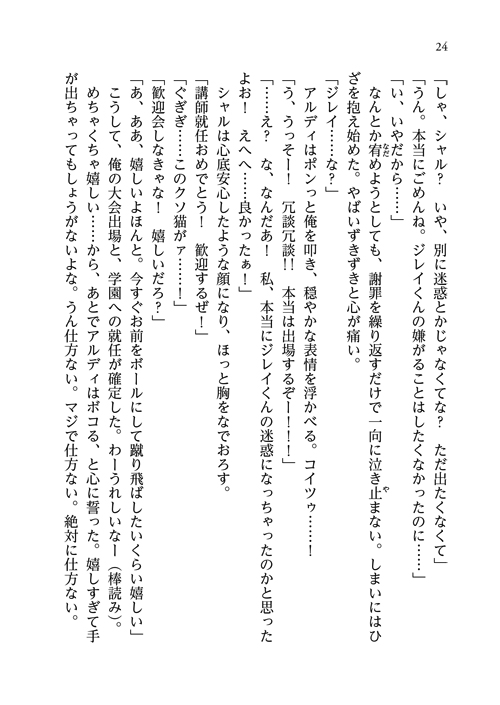 24
「しゃ、シャル？　いや、別に迷惑とかじゃなくてな？　ただ出たくなくて」
「うん。本当にごめんね。ジレイくんの嫌がることはしたくなかったのに……」
「い、いやだから……」
　なんとか宥めようとしても、謝罪を繰り返すだけで一向に泣き止まない。しまいにはひ
ざを抱え始めた。やばいずきずきと心が痛い。
「ジレイ……な？」
　アルディはポンっと俺を叩き、穏やかな表情を浮かべる。コイツゥ……！
「う、うっそー！　冗談冗談!!　本当は出場するぞー！！！」
「……え？　な、なんだあ！　私、本当にジレイくんの迷惑になっちゃったのかと思った
よお！　えへへ……良かったぁ！」
　シャルは心底安心したような顔になり、ほっと胸をなでおろす。
「講師就任おめでとう！　歓迎するぜ！」
「ぐぎぎ……このクソ猫がァ……！」
「歓迎会しなきゃな！　嬉しいだろ？」
「あ、ああ、嬉しいよほんと。今すぐお前をボールにして蹴り飛ばしたいくらい嬉しい」
　こうして、俺の大会出場と、学園への就任が確定した。わーうれしいなー（棒読み）。
　めちゃくちゃ嬉しい……から、あとでアルディはボコる、と心に誓った。嬉しすぎて手
が出ちゃってもしょうがないよな。うん仕方ない。マジで仕方ない。絶対に仕方ない。